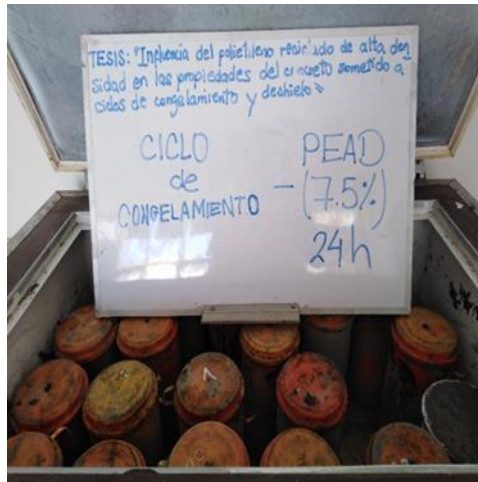 TESIS: "Influencia del polietileno reciclado de alta den
sidad en las propiedades del concreto sometido a
ciclos de congelamiento y deshielo"
CICLO
de
CONGELAMIENTO
PEAD
- (7.5%)
24h